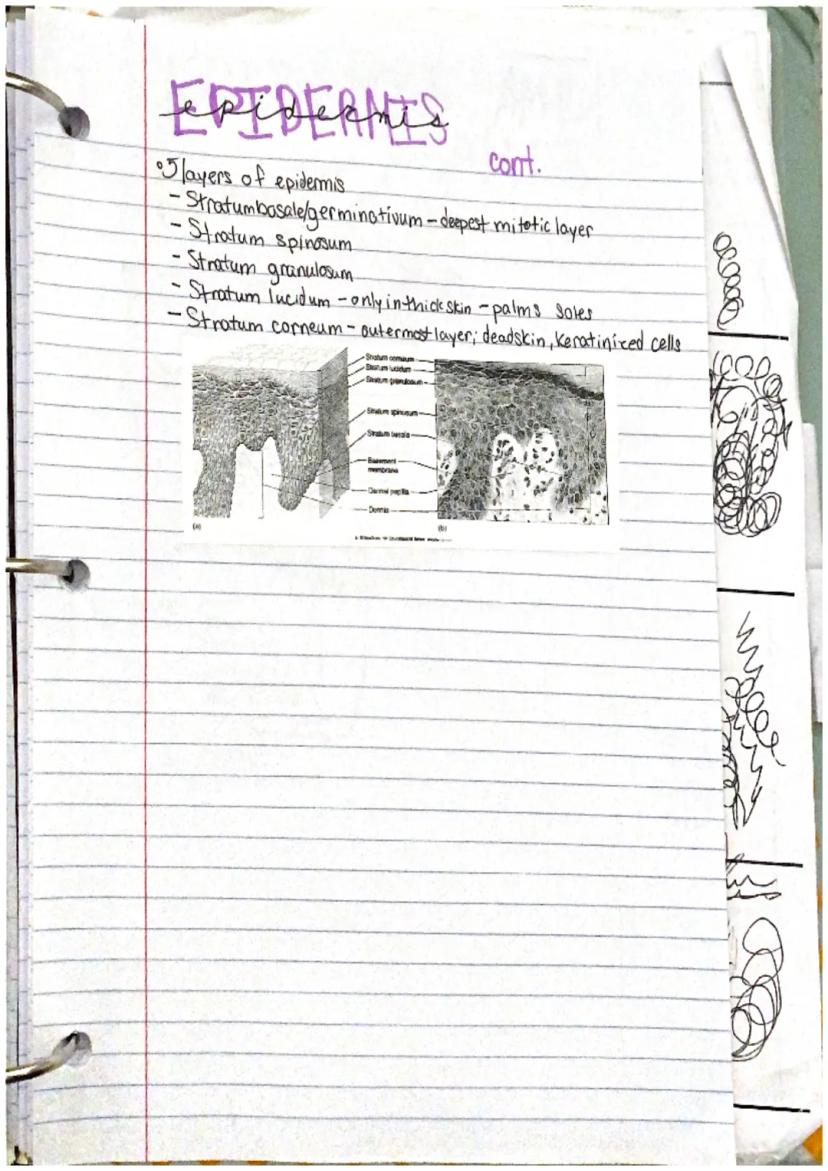 EPIDERMIS
epidermis
cont.
°5 layers of epidermis
- Stratum basale/germinativum - deepest mitotic layer
- Stratum spinosum
- Stratum granulosum
- Stratum lucidum - only in thick skin - palms soles
- Stratum corneum - outermost layer; dead skin, keratinized cells
Stratum corneum
Stratum lucidum
Stratum granulosum
Stratum spinosum
Stratum basale
Basement
membrane
Dermal papilla
Dermis
(a)
(b)